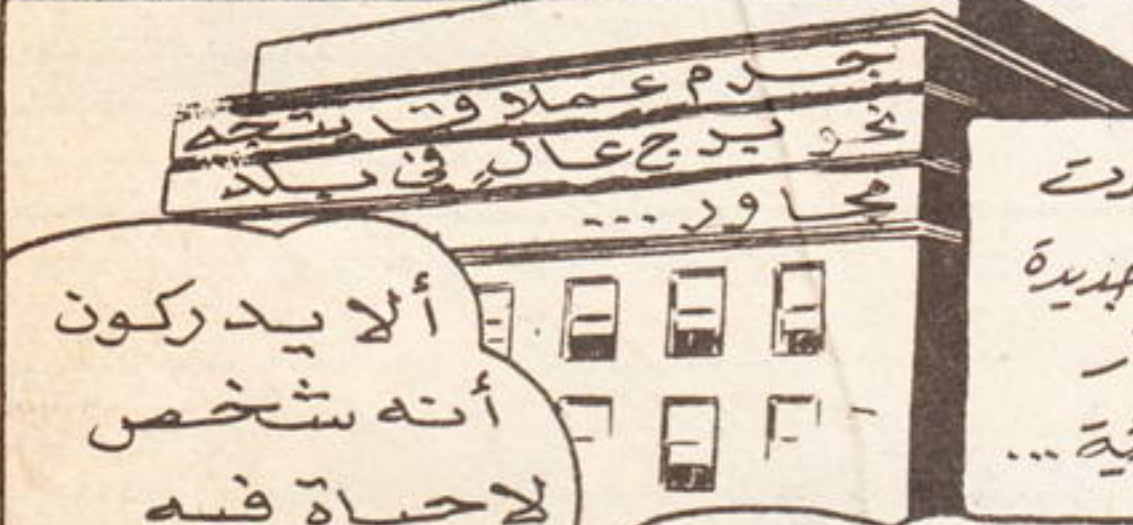 جرم عملاقا يتجه
نحو برج عالٍ في بلد
مجاور ...
جديدة
ألا يدركون
أنه شخص
لا حياة فيه